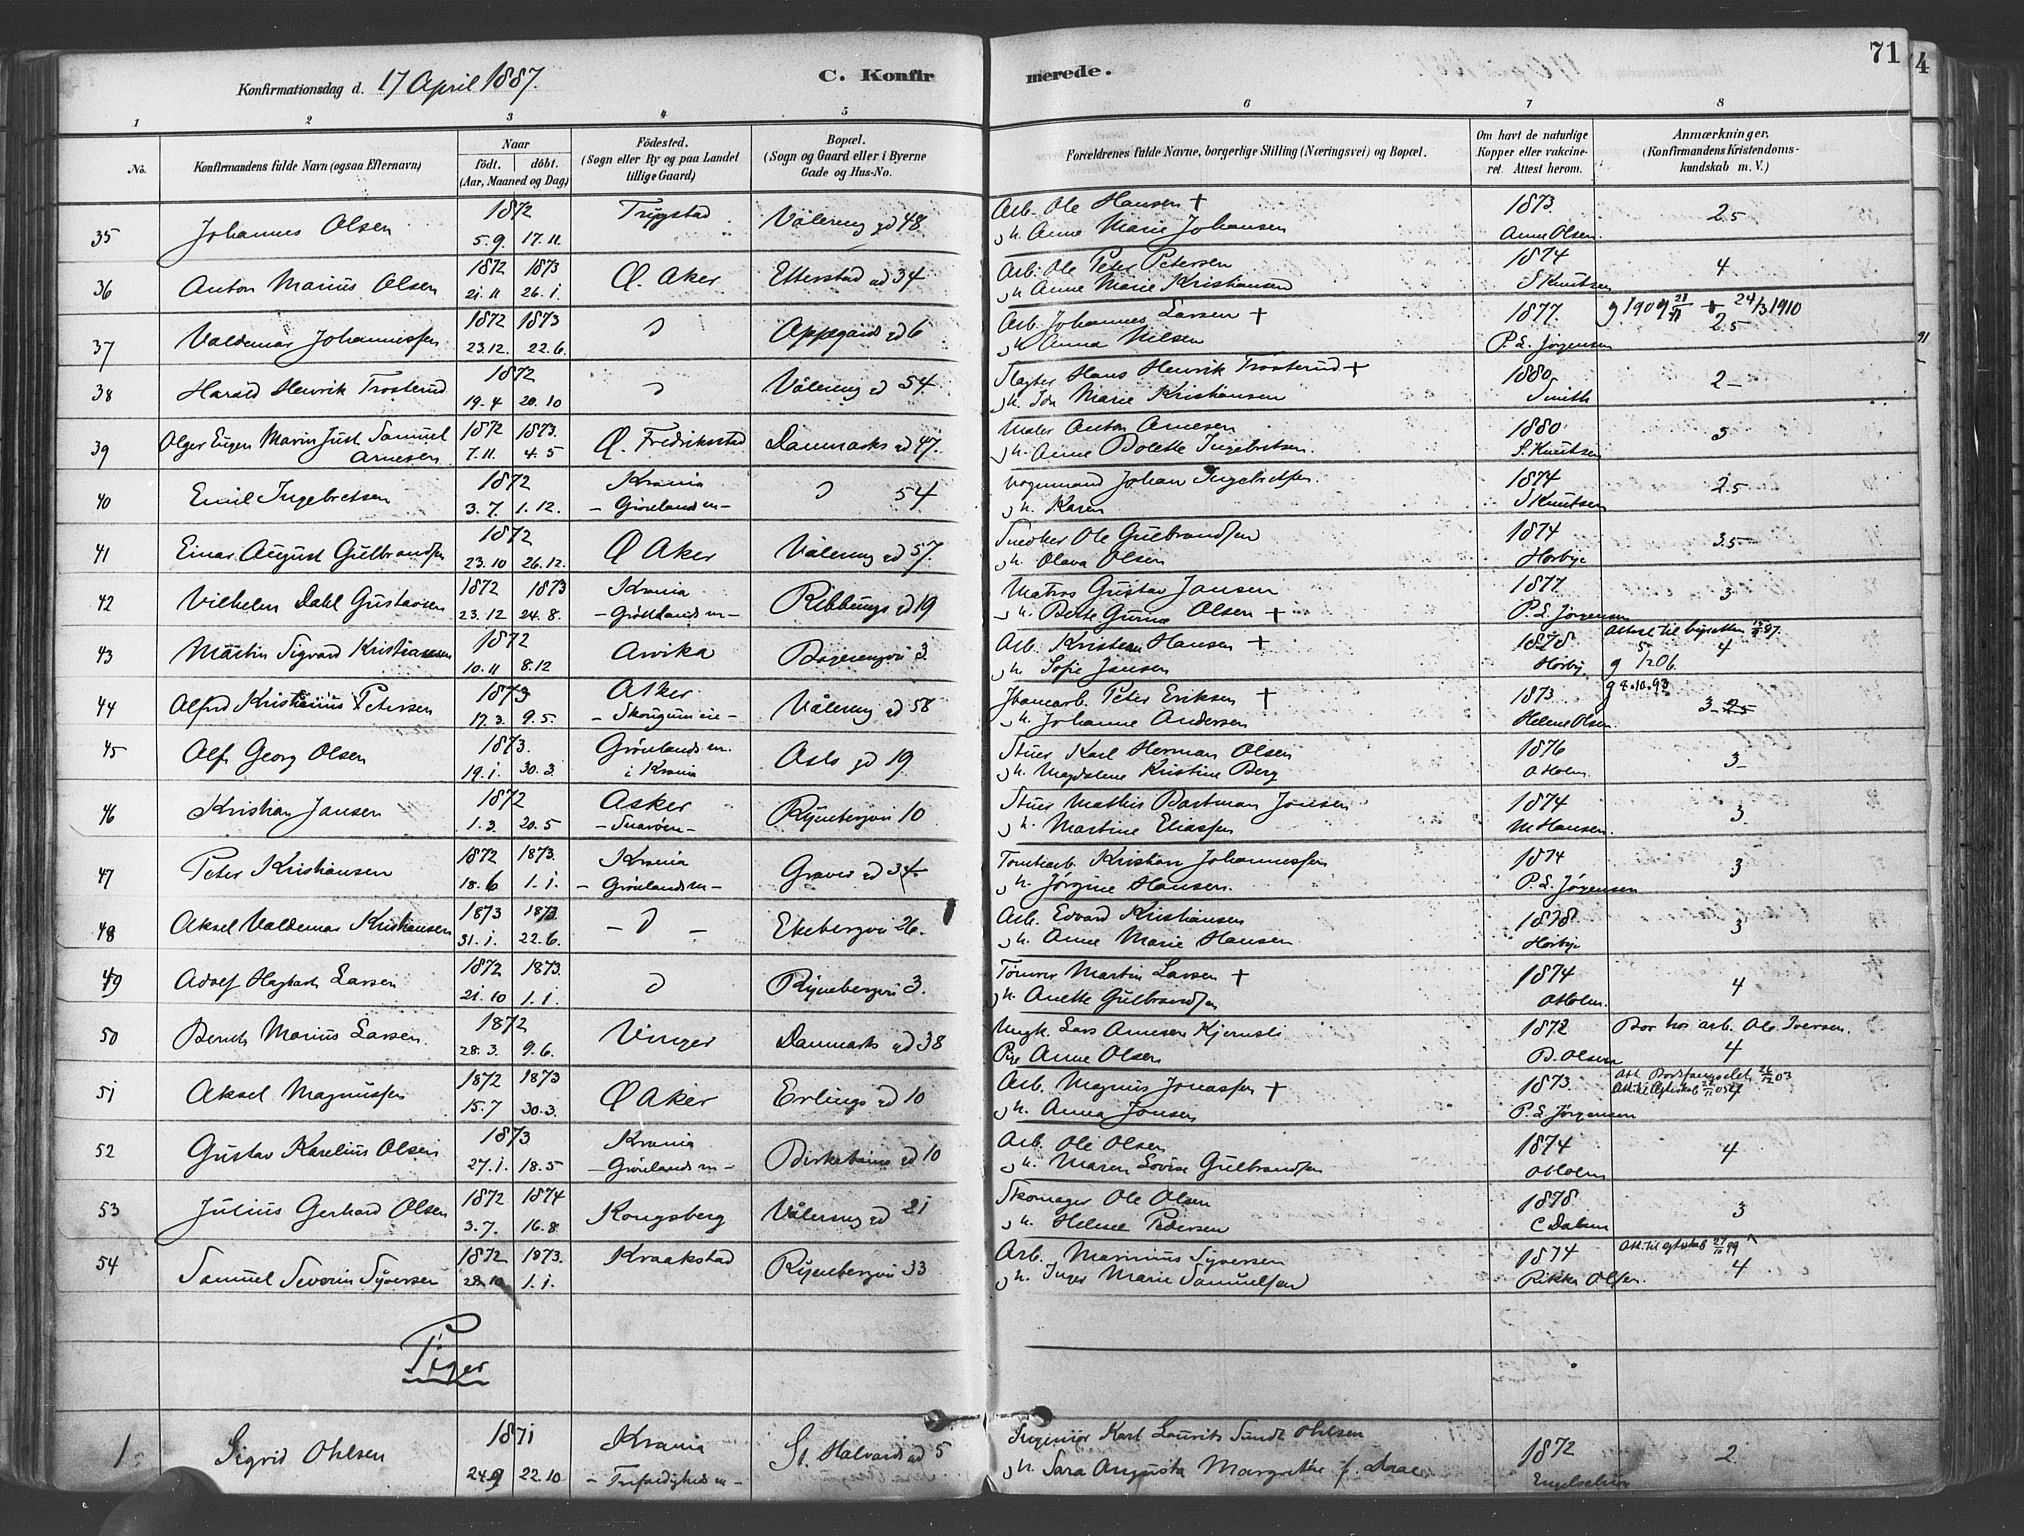 71
4
Konfirmationsdag d. 17 April 1887.
C. Konfirmerede.
1 2 3 4 5 6 7 8
No.
Konfirmandens fulde Navn (ogsaa Efternavn)
Naar
födt. döbt.
(Aar, Maaned og Dag)
Födested.
(Sogn eller By og paa Landet
tillige Gaard)
Bopæl.
(Sogn og Gaard eller i Byerne
Gade og Hus-No.
Forældrenes fulde Navne, borgerlige Stilling (Næringsvei) og Bopæl.
Om havt de naturlige
Kopper eller vakcine-
ret. Attest herom.
Anmærkninger,
(Konfirmandens Kristendoms-
kundskab m. V.)
35 Johannes Olsen 1872 5.9. 17.11. Trygstad Vålereng gd 48
Arb. Ole Hansen +
Anne Marie Johansen
1873 Anne Olsen 2.5
36 Anton Marius Olsen 1872 1873 21.11 26.1. Ø. Aker Etterstad gd 34
Arb. Ole Peter Petersen
Anne Marie Kristiansen
1874 S Knutsen 4
37 Valdemar Johannesen 1872 1873 23.12. 22.6. Oppegård gd 6
Arb. Johannes Larsen +
Anna Nilsen
1877. P. L. Jørgensen g 1909 + 24/3 1910 2.5
38 Harald Henrik Trosterud 1872 19.4 20.10 Vålereng gd 54
Slagter Hans Henrik Trosterud +
Ida Marie Kristiansen
1880 Smith 2
39 Olger Eugen Marin Just Samuel Arnesen 1872 1873. 7.11. 4.5 Ø. Fredrikstad Danmarks gd 47.
Maler Anton Arnesen
Anne Bolette Ingebretsen.
1880 S. Knutsen 3
40 Emil Ingebretsen 1872 3.7. 1.12. Krania - Grønlands m - 54
Vognmand Johan Ingebretsen
Karen
1874 S Knutsen 2.5
41 Einar August Gulbrandsen 1872 23.10 26.12. Ø Aker Vålereng gd 57.
Snedker Ole Gulbrandsen
Olava Olsen
1874 Hørbye 3.5
42 Vilhelm Dahl Gustavsen 1872 1873 23.12 24.8. Krania - Grønlands m - Ribbungs gd 19
Matros Gustav Jansen
Berte Gurine Olsen +
1877 P. L. Jørgensen 3
43 Martin Sigvard Kristiansen 1872 10.11 8.12 Arvika 3
Arb. Kristian Hansen +
Sofie Jansen
1878 Hørby 4
44 Alfred Kristianus Petersen 1873 17.3. 9.5. Asker - Skougum eie - Vålereng gd 58
Peter Eriksen +
Johanne Andersen
1873 Helene Olsen g 8.10.93 3
45 Alf Georg Olsen 1873. 19.1. 30.3. Grønlands m. i Krania Oslo gd 19
Stuer Karl Herman Olsen
Magdalene Kristine Berg
1876 O Holm 3
46 Kristian Jansen 1872 1.3. 20.5 Asker - Snarøen - Ryenbergvei 10
Stuer Mathis Bartman Jansen
Martine Eliassen
1874 M Hansen. 3
47 Peter Kristiansen 1872 1873. 18.6 1.1. Krania - Grønlands m - Graver gd 34
Tomtearb. Kristian Johannessen
Jørgine Hansen.
1874 P. L. Jørgensen 3
48 Aksel Valdemar Kristiansen 1873 1873. 31.1. 22.6. Ekebergvei 26.
Arb. Edvard Kristiansen
Anne Marie Hansen
1878 Hørbye 3
49 Adolf Hagbart Larsen 1872 1873. 21.10 1.1. Ryenbergvei 3.
Tømrer Martin Larsen +
Anette Gulbrandsen
1874 O Holm. 4
50 Bernt Marius Larsen. 1872 28.3. 9.6. Vinger Danmarks gd 38
Ungk. Lars Arnesen Kjernsli
Pige Anne Olsen
1872 B. Olsen Bor hos arb. Ole Iversen. 4
51 Aksel Magnussen 1872 1873 15.7 30.3. Ø Aker Erlings gd 10
Arb. Magnus Jonassen +
Anna Jonsen
1873. P. L. Jørgensen
52 Gustav Karelius Olsen 1873 27.1. 18.5 Krania - Grønlands m - Birkebeiner gd 10
Arb. Ole Olsen
Maren Lovise Gulbrandsen
1874 O Holm 4
53 Julius Gerhard Olsen 1872 1874 3.7. 16.8 Kongsberg Vålereng gd 21
Skomager Ole Olsen
Helene Pedersen
1878 C Dalsen 3
54 Samuel Severin Syversen 1872 1873. 28.10 1.1. Kraakstad Ryenbergvei 33
Arb. Marinius Syversen
Inger Marie Samuelsen
1874 Rikka Olsen 4
Piger
1 Sigrid Ohlsen 1871 24.9 22.10 Krania - Trefoldigheds m - St. Halvards gd 5
Ingeniør Karl Laurits Sundt Ohlsen
Sara Augusta Margrethe f. Aae
1872 2